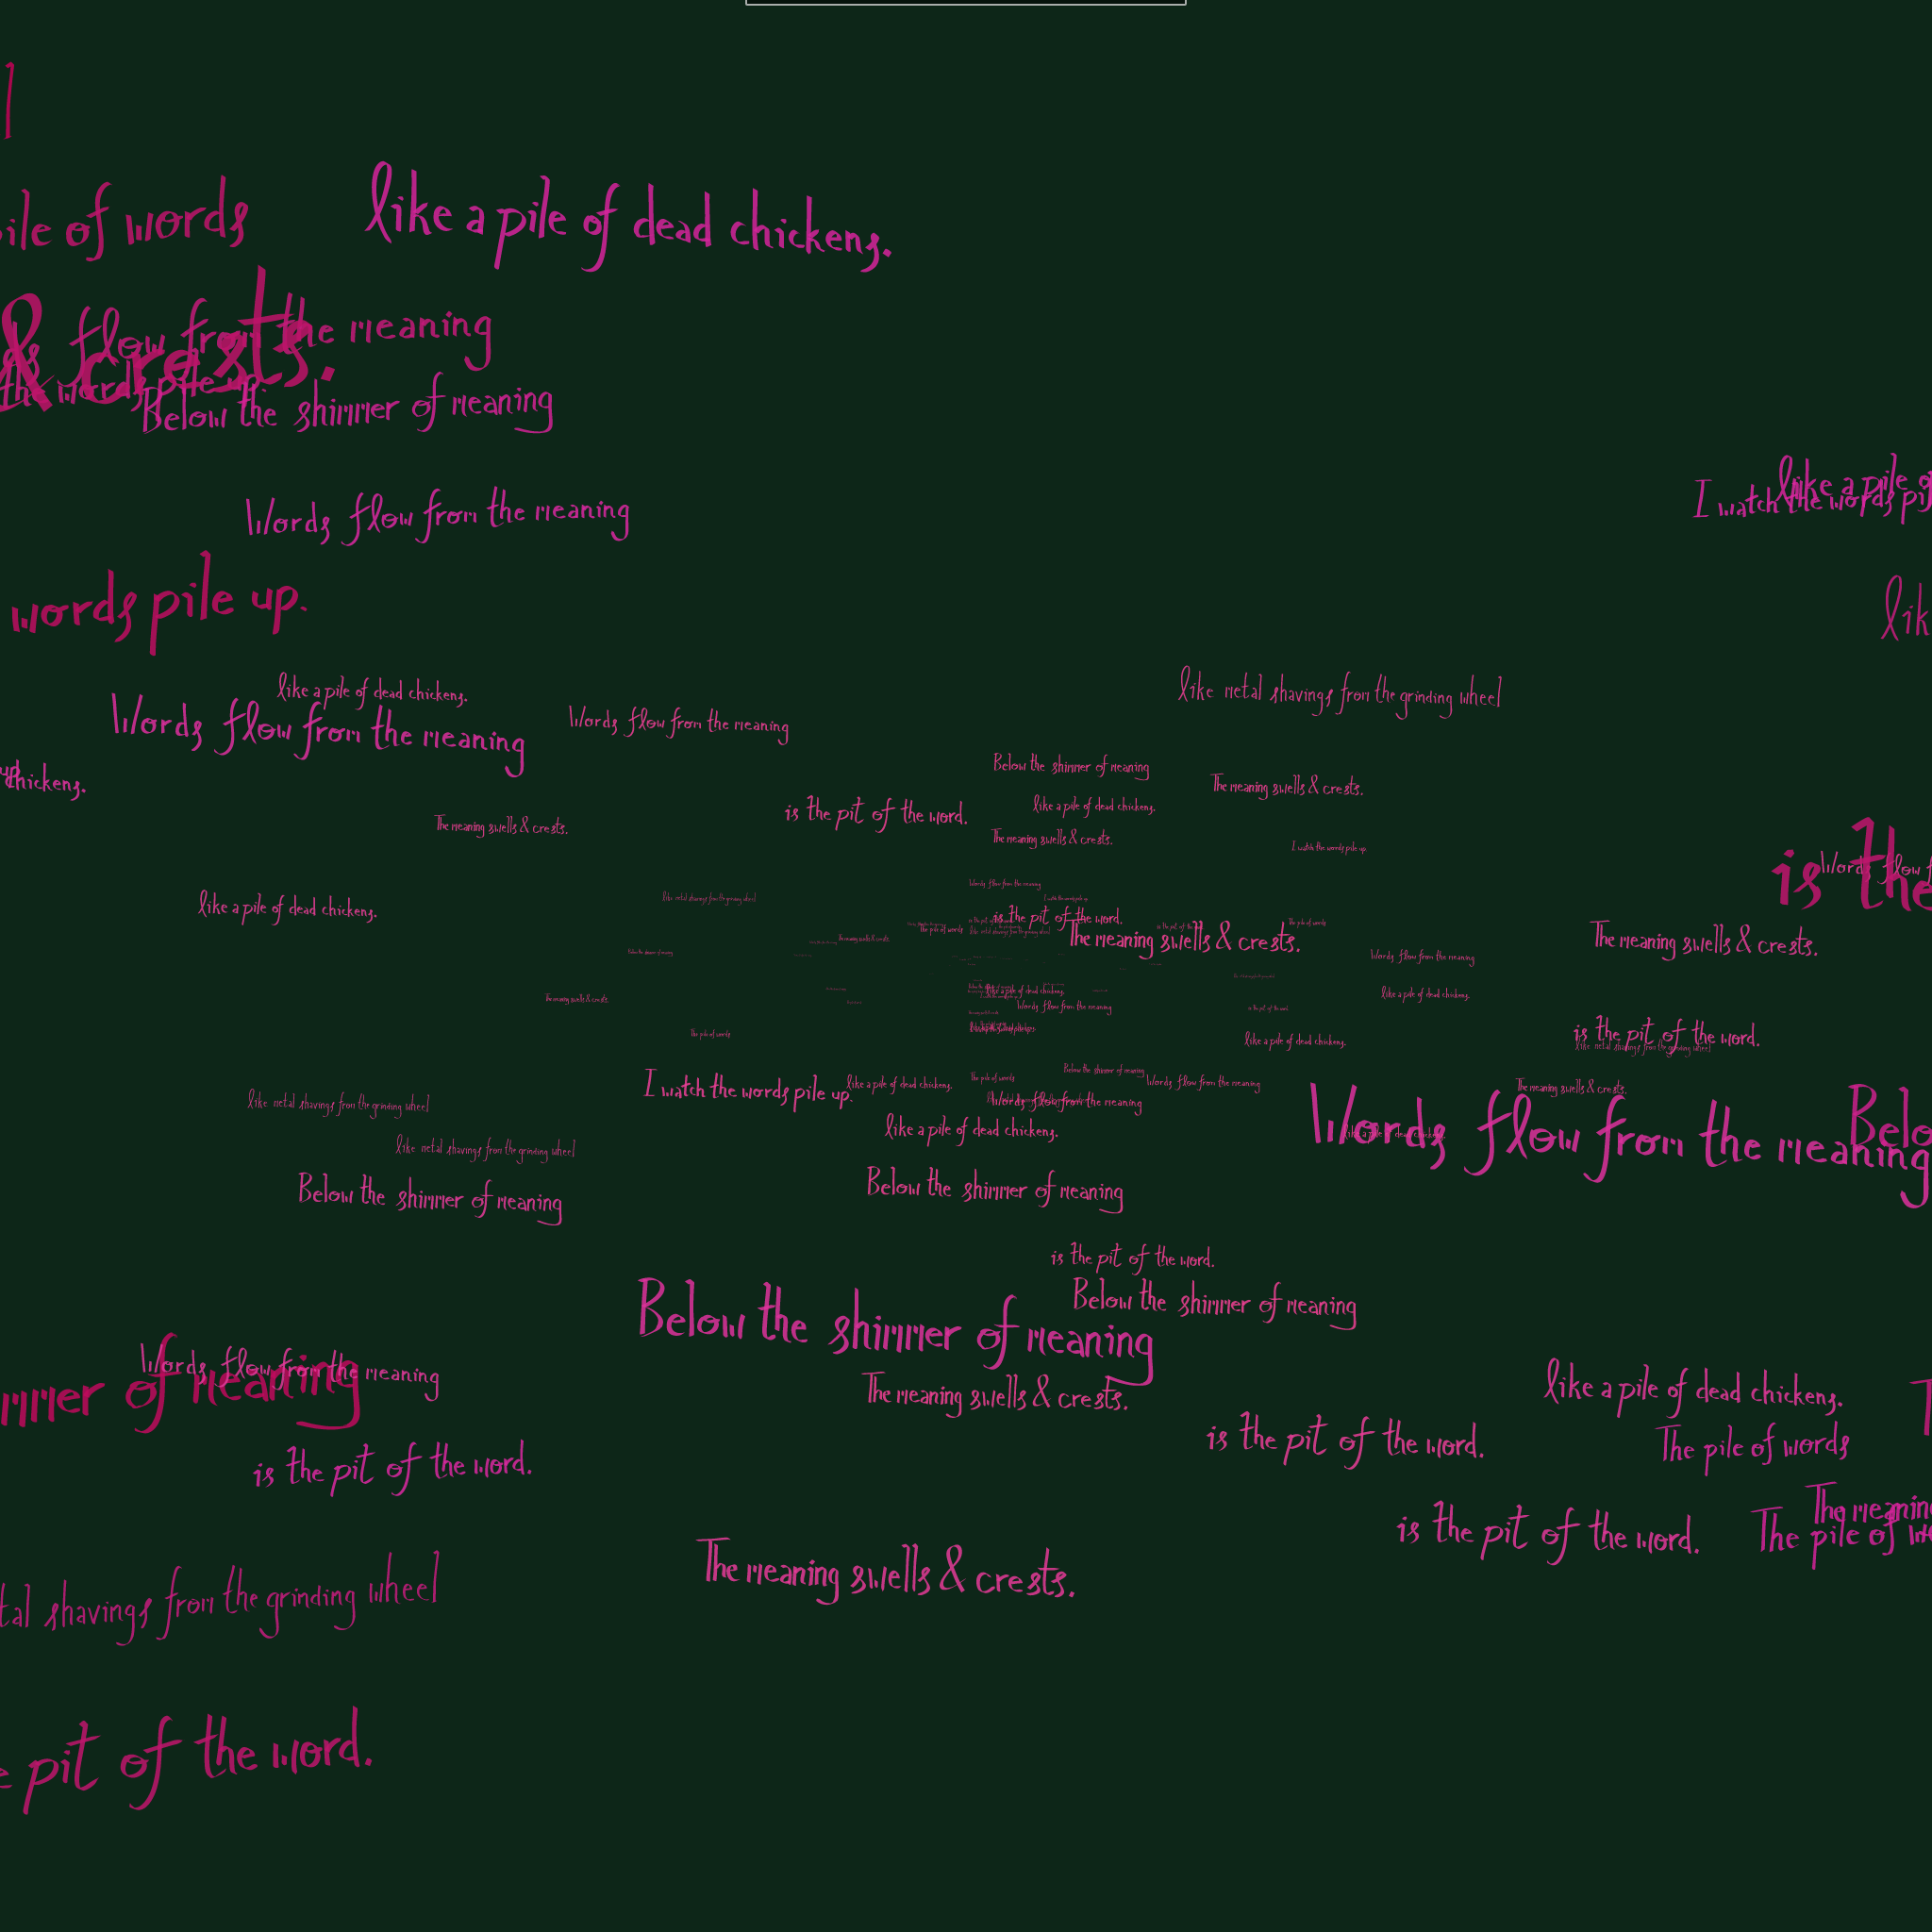 l
ile of words
like a pile of dead chickens.
flow from the meaning
& crests.
the words pile up.
Below the shimmer of meaning
Words flow from the meaning
like a pile o
I watch the words pi
lik
words pile up.
like a pile of dead chickens.
like metal shavings from the grinding wheel
Words flow from the meaning
Words flow from the meaning
up.
chickens.
Below the shimmer of meaning
The meaning swells & crests.
like a pile of dead chickens.
is the pit of the word.
The meaning swells & crests.
The meaning swells & crests.
I watch the words pile up.
is the
Words flow f
Words flow from the meaning
like a pile of dead chickens.
like metal shavings from the grinding wheel
is the pit of the word.
The pile of words
The pile of words
is the pit of the word.
like metal shavings from the grinding wheel
The meaning swells & crests.
The meaning swells & crests.
The meaning swells & crests.
Below the shimmer of meaning
Words flow from the meaning
like a pile of dead chickens.
like a pile of dead chickens.
The meaning swells & crests.
Words flow from the meaning
is the pit of the word.
The pile of words
like a pile of dead chickens.
is the pit of the word.
like metal shavings from the grinding wheel
Below the shimmer of meaning
The pile of words
Words flow from the meaning
I watch the words pile up.
like a pile of dead chickens.
The meaning swells & crests.
like metal shavings from the grinding wheel
Words flow from the meaning
Words flow from the meaning
Belo
like a pile of dead chickens.
like a pile of dead chickens.
like metal shavings from the grinding wheel
Below the shimmer of meaning
Below the shimmer of meaning
is the pit of the word.
Below the shimmer of meaning
Below the shimmer of meaning
Words flow from the meaning
mmer of meaning
The meaning swells & crests.
like a pile of dead chickens.
T
is the pit of the word.
The pile of words
is the pit of the word.
The meaning
is the pit of the word.
The pile of wo
The meaning swells & crests.
tal shavings from the grinding wheel
e pit of the word.